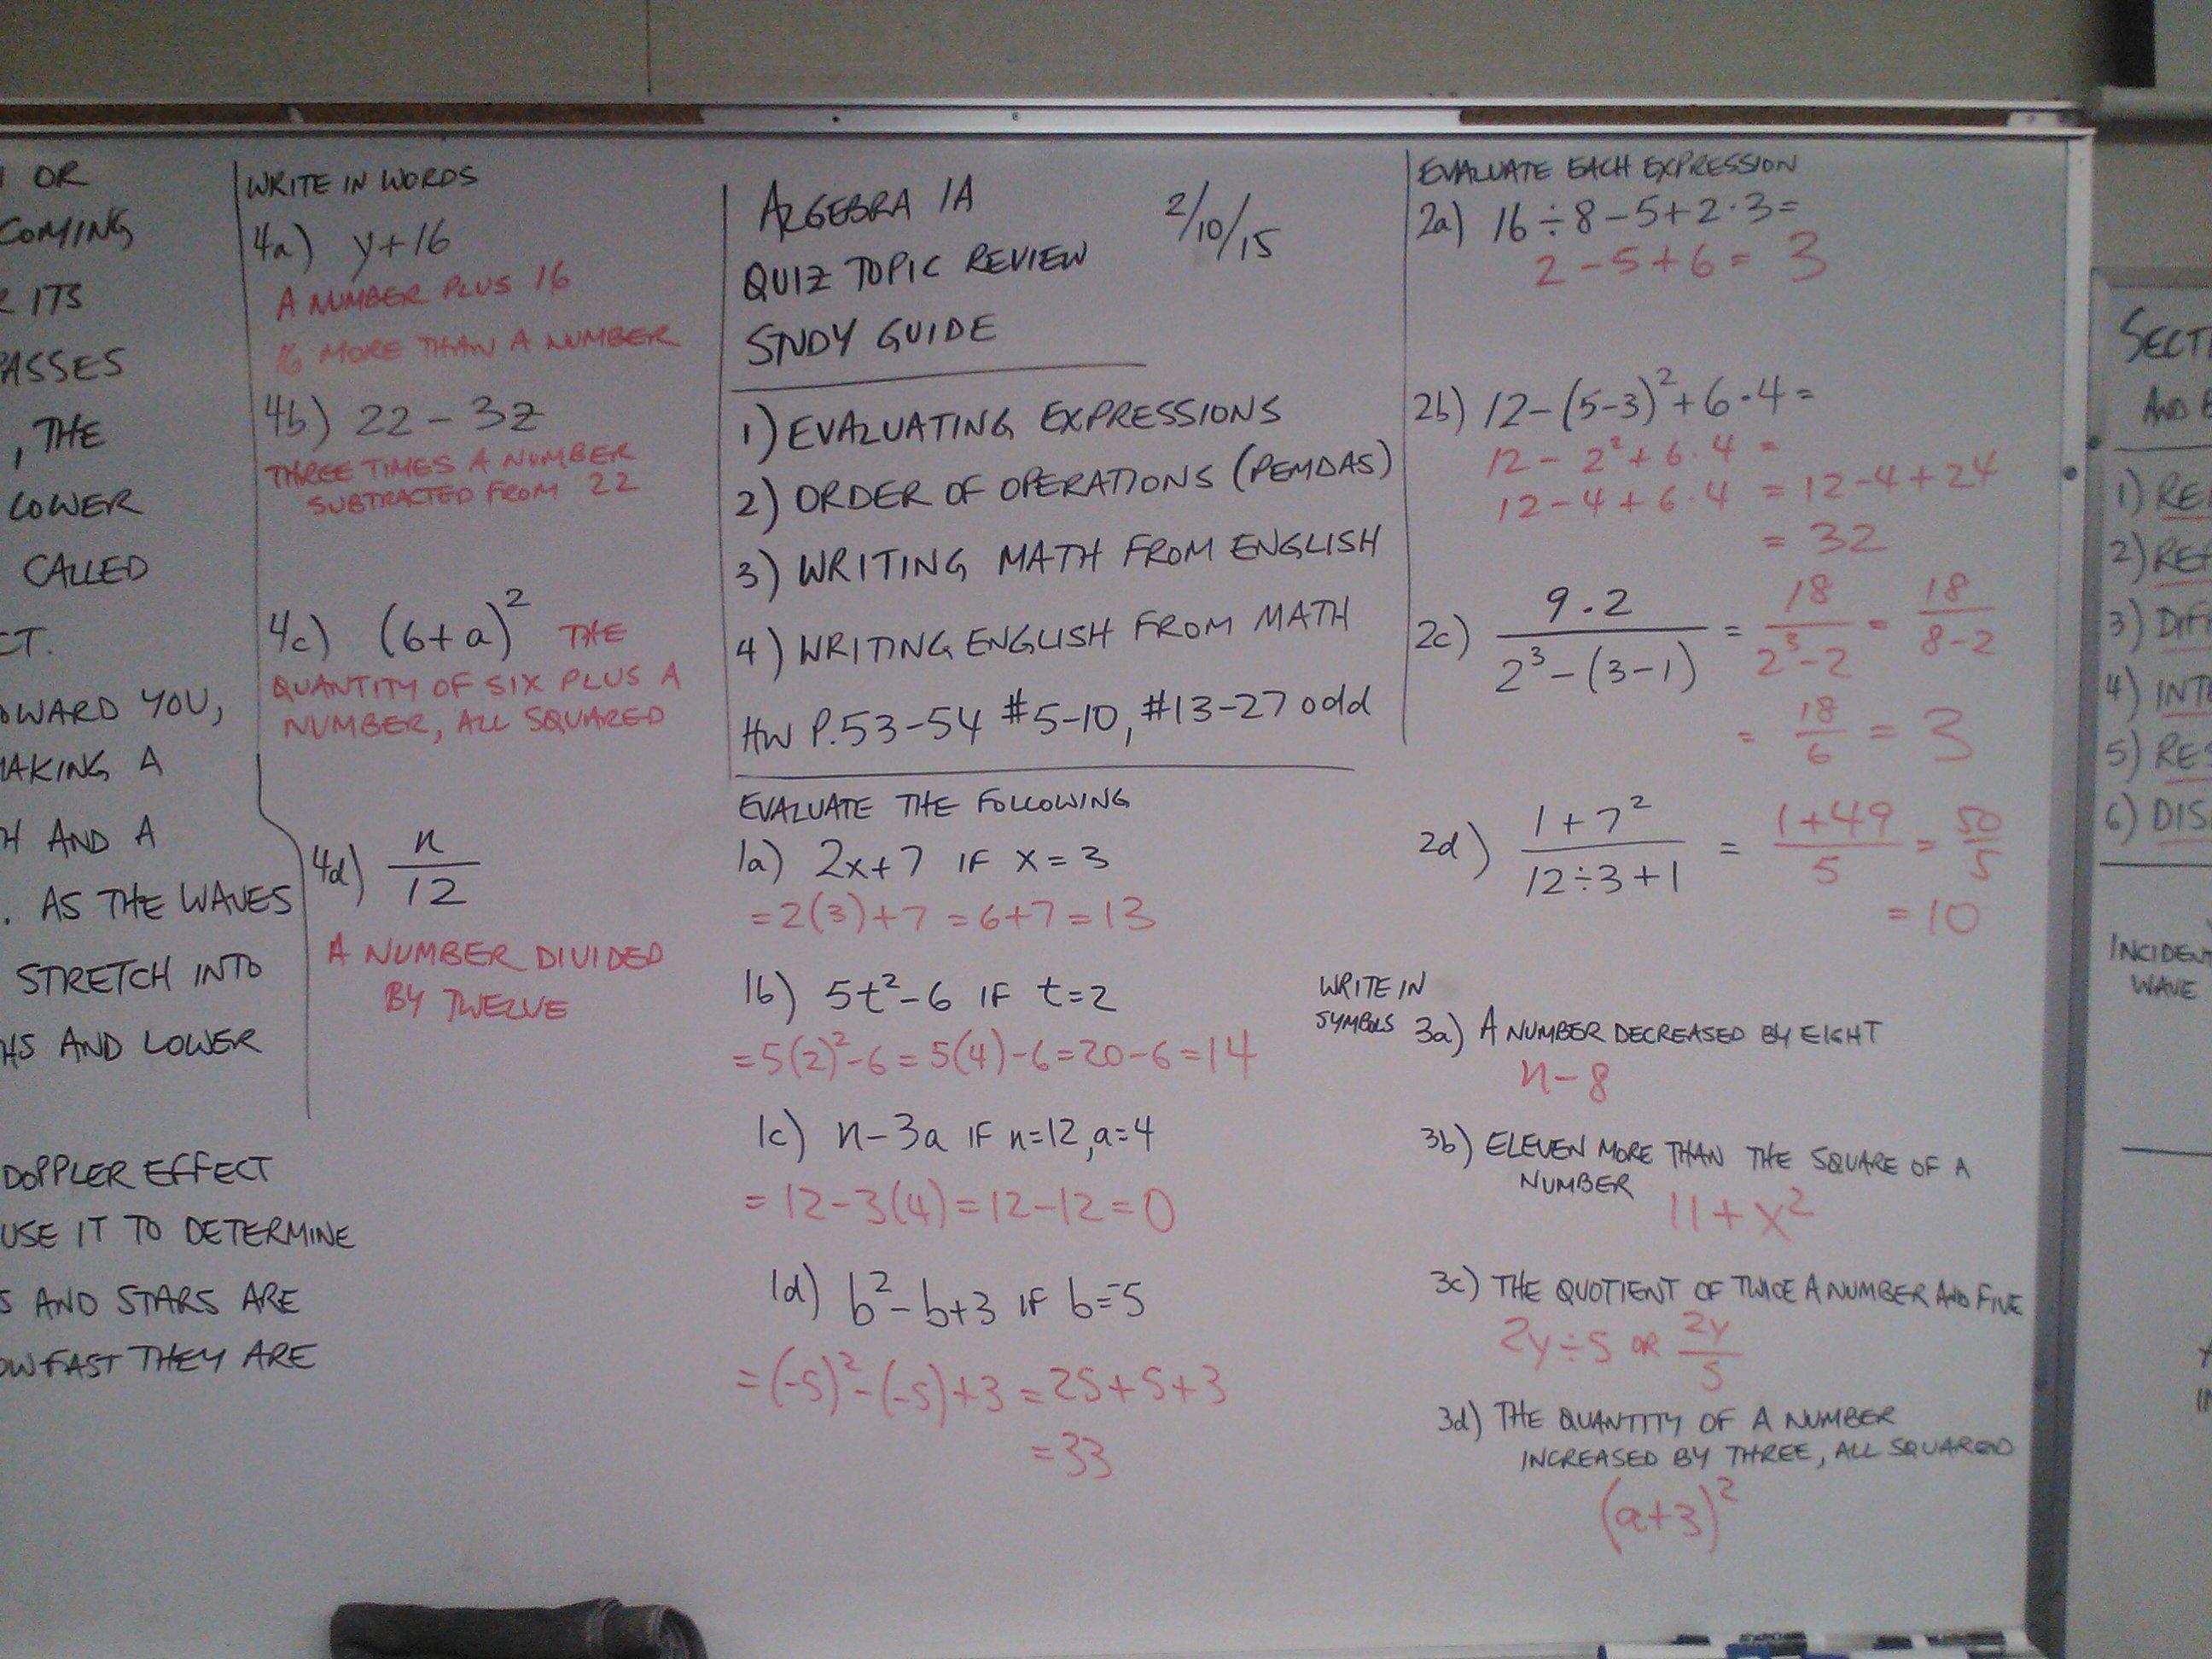 N OR
COMING
R ITS
PASSES
, THE
LOWER
CALLED
CT.
OWARD YOU,
MAKING A
H AND A
. AS THE WAVES
STRETCH INTO
HS AND LOWER
DOPPLER EFFECT
USE IT TO DETERMINE
S AND STARS ARE
OW FAST THEY ARE
WRITE IN WORDS
4a) y+16
A NUMBER PLUS 16
16 MORE THAN A NUMBER
4b) 22 - 3z
THREE TIMES A NUMBER
SUBTRACTED FROM 22
4c) (6+a)² THE
QUANTITY OF SIX PLUS A
NUMBER, ALL SQUARED
4d) n/12
A NUMBER DIVIDED
BY TWELVE
ALGEBRA 1A 2/10/15
QUIZ TOPIC REVIEW
STUDY GUIDE
1) EVALUATING EXPRESSIONS
2) ORDER OF OPERATIONS (PEMDAS)
3) WRITING MATH FROM ENGLISH
4) WRITING ENGLISH FROM MATH
HW P.53-54 #5-10, #13-27 odd
EVALUATE THE FOLLOWING
1a) 2x+7 IF x=3
=2(3)+7=6+7=13
1b) 5t²-6 IF t=2
=5(2)²-6=5(4)-6=20-6=14
1c) n-3a IF n=12, a=4
=12-3(4)=12-12=0
1d) b²-b+3 IF b=-5
=(-5)²-(-5)+3=25+5+3
=33
EVALUATE EACH EXPRESSION
2a) 16÷8-5+2·3=
2-5+6=3
2b) 12-(5-3)²+6·4=
12-2²+6·4=
12-4+6·4=12-4+24
=32
2c) 9·2/2³-(3-1) = 18/2³-2 = 18/8-2
= 18/6 = 3
2d) 1+7²/12÷3+1 = 1+49/5 = 50/5
=10
WRITE IN
SYMBOLS
3a) A NUMBER DECREASED BY EIGHT
n-8
3b) ELEVEN MORE THAN THE SQUARE OF A
NUMBER 11+x²
3c) THE QUOTIENT OF TWICE A NUMBER AND FIVE
2y÷5 OR 2y/5
3d) THE QUANTITY OF A NUMBER
INCREASED BY THREE, ALL SQUARED
(a+3)²
SECTI
AND
1) RE
2) REF
3) DIF
4) INT
5) RES
6) DIS
INCIDENT
WAVE